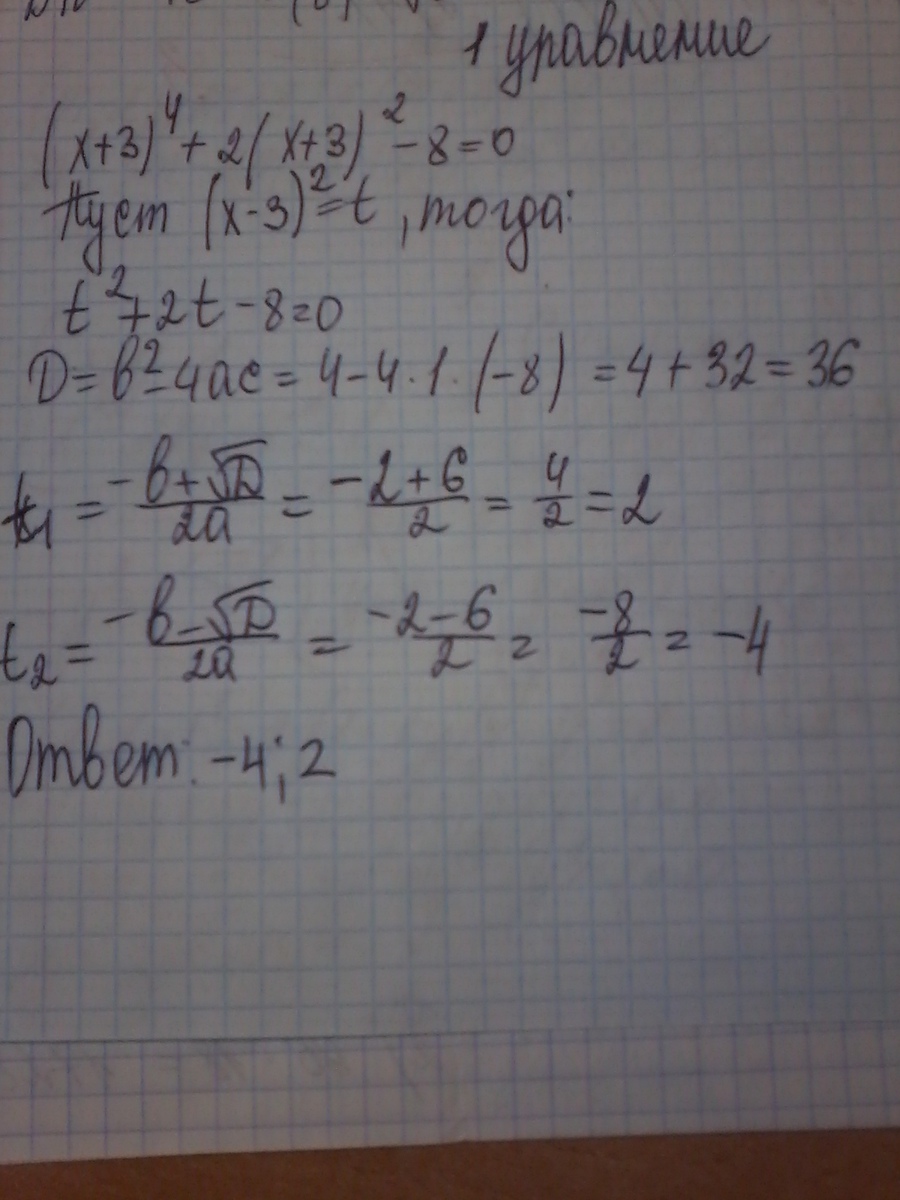 1 уравнение
(x+3)⁴+2(x+3)²-8=0
Пуст (x-3)²=t, тогда:
t²+2t-8=0
D=b²-4ac=4-4·1·(-8)=4+32=36
t₁=(-b+√D)/2a=(-2+6)/2=4/2=2
t₂=(-b-√D)/2a=(-2-6)/2=-8/2=-4
Ответ: -4; 2